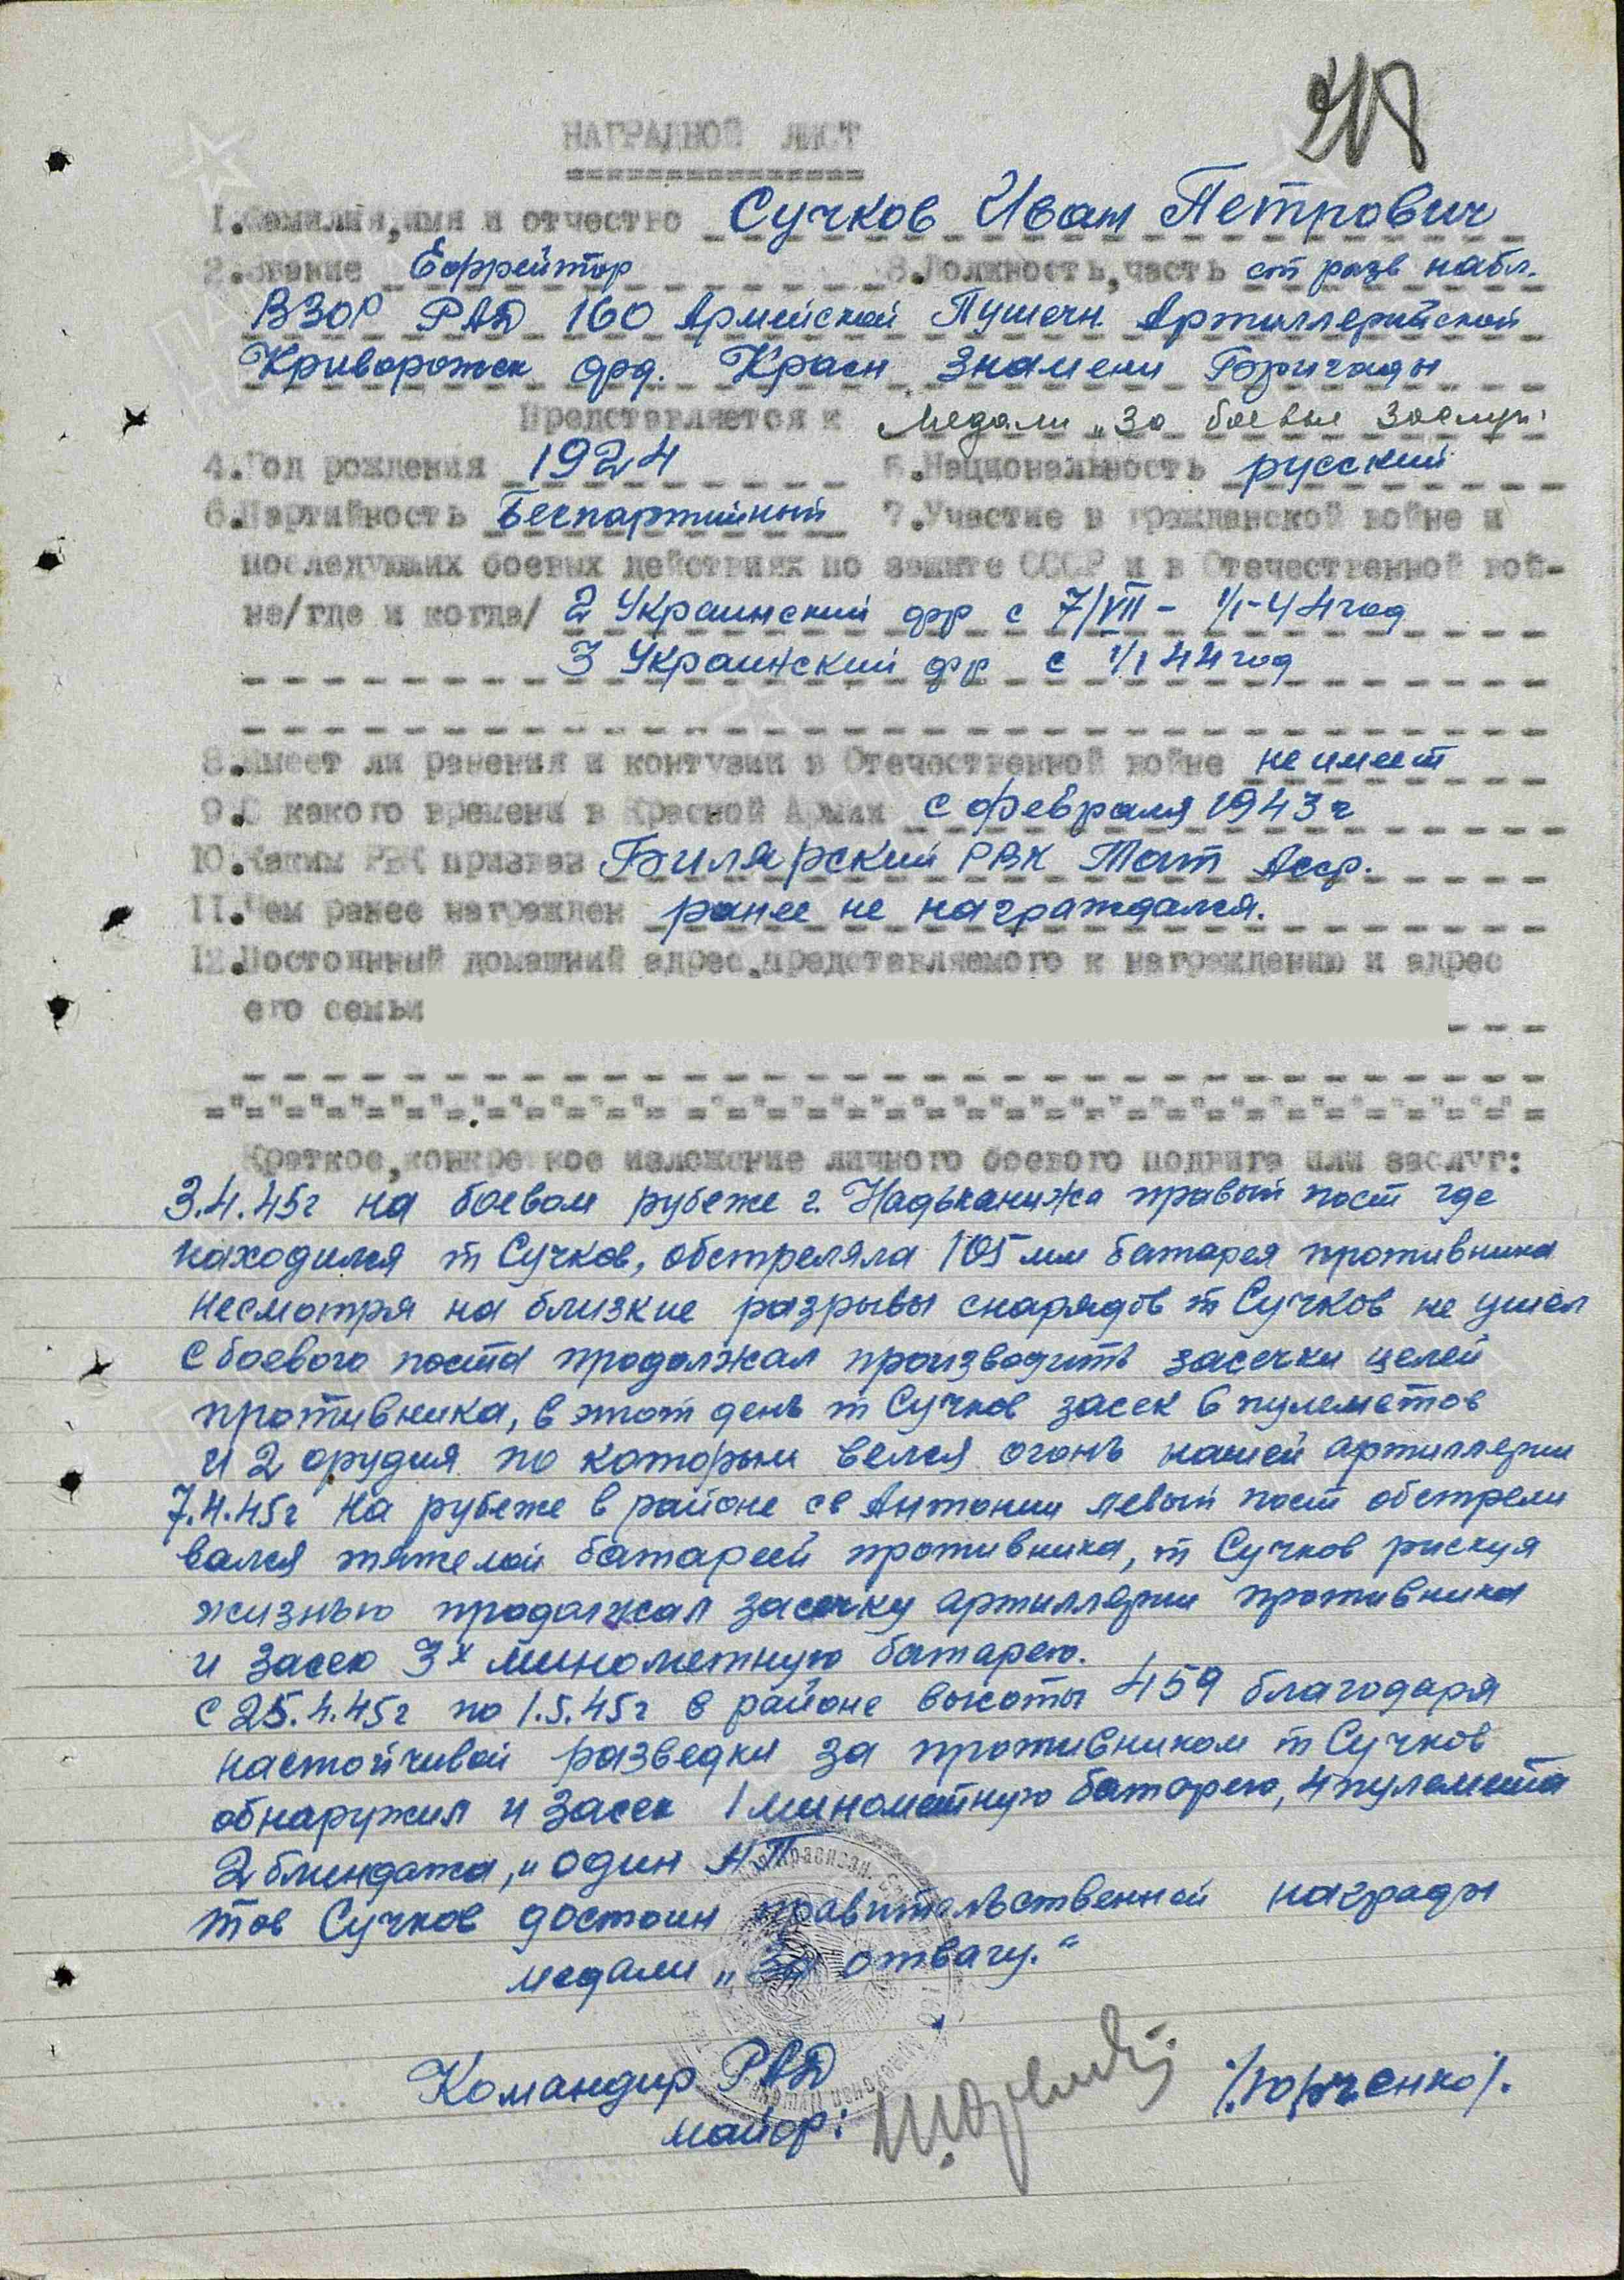 НАГРАДНОЙ ЛИСТ
1.Фамилия,имя и отчество Сучков Иван Петрович
2.Звание Ефрейтор 3.Должность,часть ст разв набл.
ВЗОР РАД 160 Армейской Пушечн. Артиллерийской
Криворожск орд. Красн Знамени Бригады
Представляется к Медали „За боевые заслуги
4.Год рождения 1924 5.Национальность русский
6.Партийность Беспартийный 7.Участие в гражданской войне и
последующих боевых действиях по защите СССР и в Отечественной вой-
не/где и когда/ 2 Украинский фр с 7/VII - 1/1-44 год
3 Украинский фр с 1/1 44 год
8.Имеет ли ранения и контузии в Отечественной войне не имеет
9.С какого времени в Красной Армии с февраля 1943 г
10.Каким РВК призван Билярский РВК Тат Асср.
11.Чем ранее награжден ранее не награждался.
12.Постоянный домашний адрес,представляемого к награждению и адрес
его семьи
Краткое,конкретное изложение личного боевого подвига или заслуг:
3.4.45г на боевом рубеже г. Надьканижа правый пост где
находился т Сучков, обстреляла 105 мм батарея противника
Несмотря на близкие разрывы снарядов т Сучков не ушел
с боевого поста продолжал производить засечки целей
противника, в этот день т Сучков засек 6 пулеметов
и 2 орудия по которым велся огонь нашей артиллерии
7.4.45г На рубеже в районе св Антонии левый пост обстрели
вался тяжелой батареей противника, т Сучков рискуя
жизнью продолжал засечку артиллерии противника
и засек 3х минометную батарею.
С 25.4.45г по 1.5.45г в районе высоты 459 благодаря
настойчивой разведки за противником т Сучков
обнаружил и засек 1 минометную батарею, 4 пулемета
2 блиндажа, и один НП
тов Сучков достоин правительственной награды
медали „За отвагу."
Командир РАД
майор: /Юрченко/.